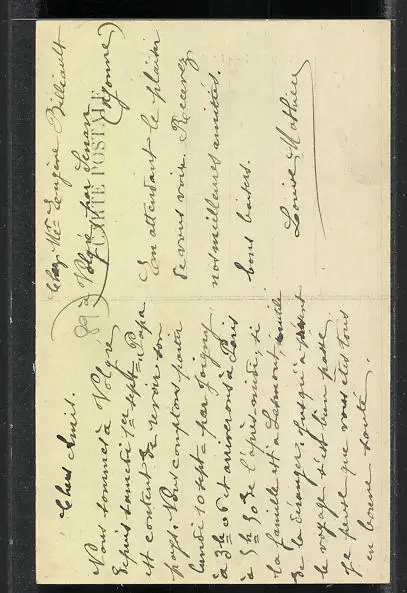 Chers Amis.
Nous sommes à Volgré
depuis samedi 1er sept= Papa
est content de revoir son
pays. Nous comptons partir
lundi 10 sept= par Joigny
à 3h 06 et arriverons à Paris
à 5h 50 de l'après-midi, si
la famille est à Lesmont, inutile
de la déranger. Jusqu'à présent
le voyage s'est bien passé.
Je pense que vous êtes tous
en bonne santé.
Chez Mr Eugène Billiault
à Volgré par Senan
(Yonne)
CARTE POSTALE
89
En attendant le plaisir
de vous voir. Recevez
nos meilleures amitiés.
bons baisers.
Louise Mathieu